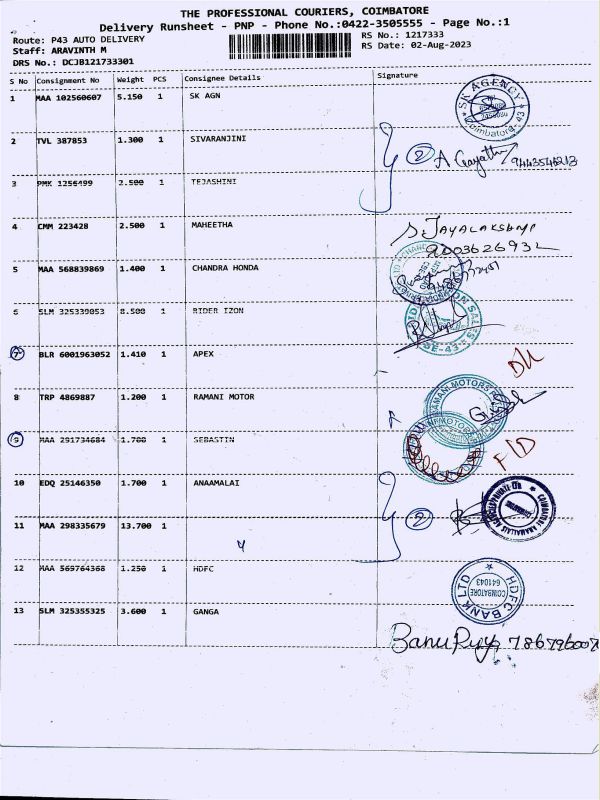 THE PROFESSIONAL COURIERS, COIMBATORE
Delivery Runsheet - PNP - Phone No.:0422-3505555 - Page No.:1
Route: P43 AUTO DELIVERY
RS No.: 1217333
Staff: ARAVINTH M
RS Date: 02-Aug-2023
DRS No.: DCJB121733301
S No Consignment No Weight PCS Consignee Details Signature
1 MAA 102560607 5.150 1 SK AGN
SK AGENCY
Coimbatore-43
2 TVL 387853 1.300 1 SIVARANJINI
2 A Gayathri 9443546213
3 PMK 1256499 2.500 1 TEJASHINI
4 CMM 223428 2.500 1 MAHEETHA
S. JAYALAKSHMI
9003626932
5 MAA 568839869 1.400 1 CHANDRA HONDA
6 SLM 325339053 8.500 1 RIDER IZON
7 BLR 6001963052 1.410 1 APEX
8 TRP 4869887 1.200 1 RAMANI MOTOR
RAMANI MOTORS
9 MAA 291734684 1.700 1 SEBASTIN
10 EDQ 25146350 1.700 1 ANAAMALAI
2
11 MAA 298335679 13.700 1 ANAAMALAI
12 MAA 569764368 1.250 1 HDFC
HDFC BANK LTD
COIMBATORE
641043
13 SLM 325355325 3.600 1 GANGA